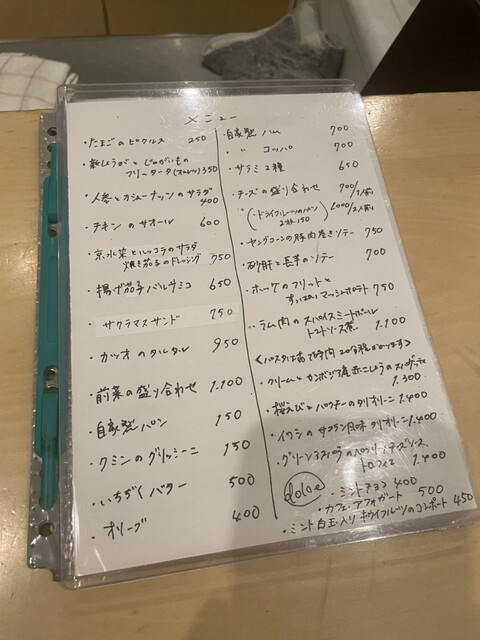 メニュー
・たまごのピクルス 250
・新しょうがとじゃがいもの
フリッタータ(オムレツ)350
・人参とカシューナッツのサラダ
400
・チキンのサオール 600
・京水菜とルッコラのサラダ
焼き茄子のドレッシング 750
・揚げ茄子バルサミコ 650
・サクラマスサンド 750
・カツオのタルタル 950
・前菜の盛り合わせ 1.100
・自家製パン 150
・クミンのグリッシーニ 150
・いちぢくバター 500
・オリーブ 400
・自家製ハム 700
・〃 コッパ 700
・サラミ2種 650
・チーズの盛り合わせ 700/1人前
(・ドライフルーツのパン 2枚150) 1000/2人前
・ヤングコーンの豚肉巻きソテー 750
・砂肝と長芋のソテー 700
・ホッケのフリットと
すっぱいマッシュポテト 750
・ラム肉のスパイスミートボール
トマトソース煮 1.100
くパスタは茹で時間20分程かかります>
・クリームとカンボジア産赤こしょうのスパゲッティ
1.300
・桜えびとパクチーのタリオリーニ 1.400
・イワシのサフラン風味タリオリーニ 1.400
・グリーンアスパラの
トロフィエ 1.400
dolce
・ミントチョコ 400
・カフェ・アフォガート 500
・ミント白玉入りキウイフルーツのコンポート 450